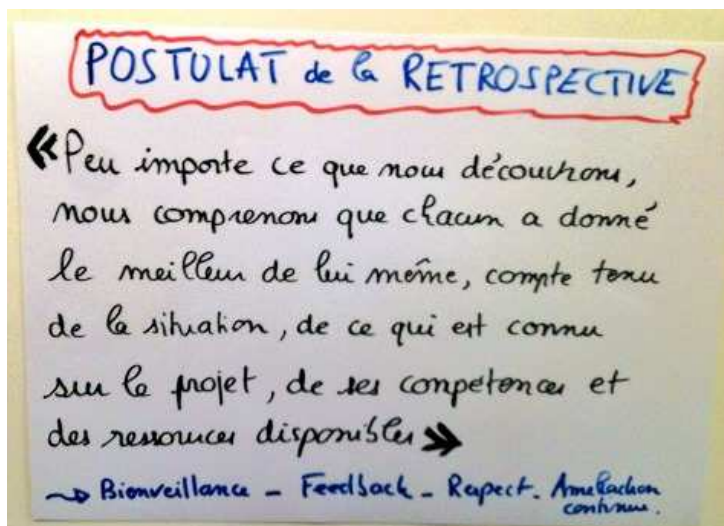 POSTULAT de la RETROSPECTIVE
« Peu importe ce que nous découvrons,
nous comprenons que chacun a donné
le meilleur de lui même, compte tenu
de la situation, de ce qui est connu
sur le projet, de ses compétences et
des ressources disponibles »
→ Bienveillance - Feedback - Respect. Amélioration
continue.